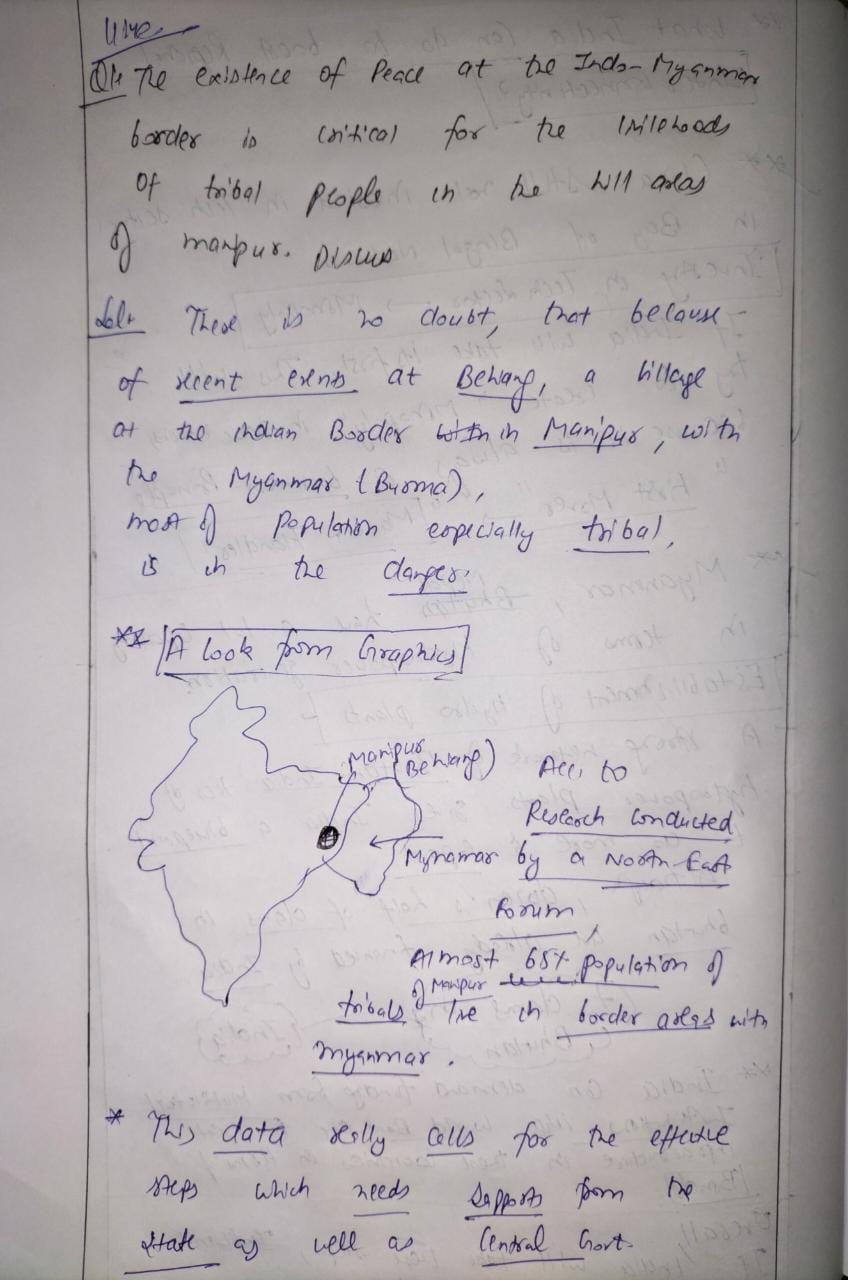 Q1. The existence of Peace at the Indo-Myanmar
border is critical for the livelihoods
of tribal people in the hill areas
of manipur. Discuss
Sol: There is no doubt, that because
of recent events at Behiang, a village
at the indian Border in Manipur, with
the Myanmar (Burma),
most of population especially tribal,
is in the danger.
** A look from Graphics
Manipur
(Behiang)
Mynamar
Acc. to
Research conducted
by a North-East
Forum,
Almost 65% population of
tribals of Manipur live in border areas with
myanmar.
* This data really calls for the effective
steps which needs supports from the
state as well as Central Govt.